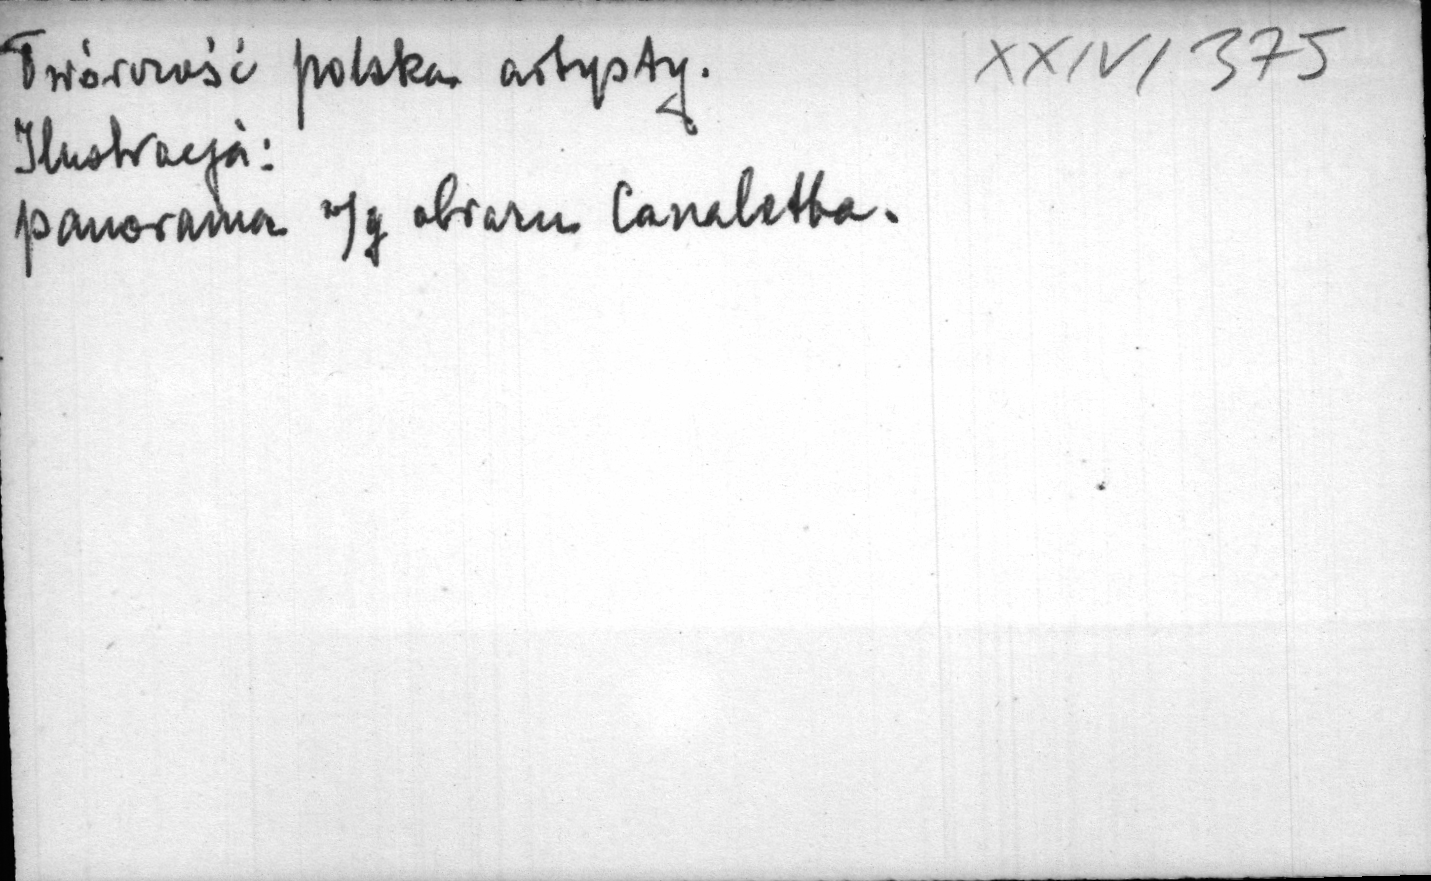 Twórczość polska artysty. XXIV/375
Ilustracja:
panorama w/g obrazu Canaletta.